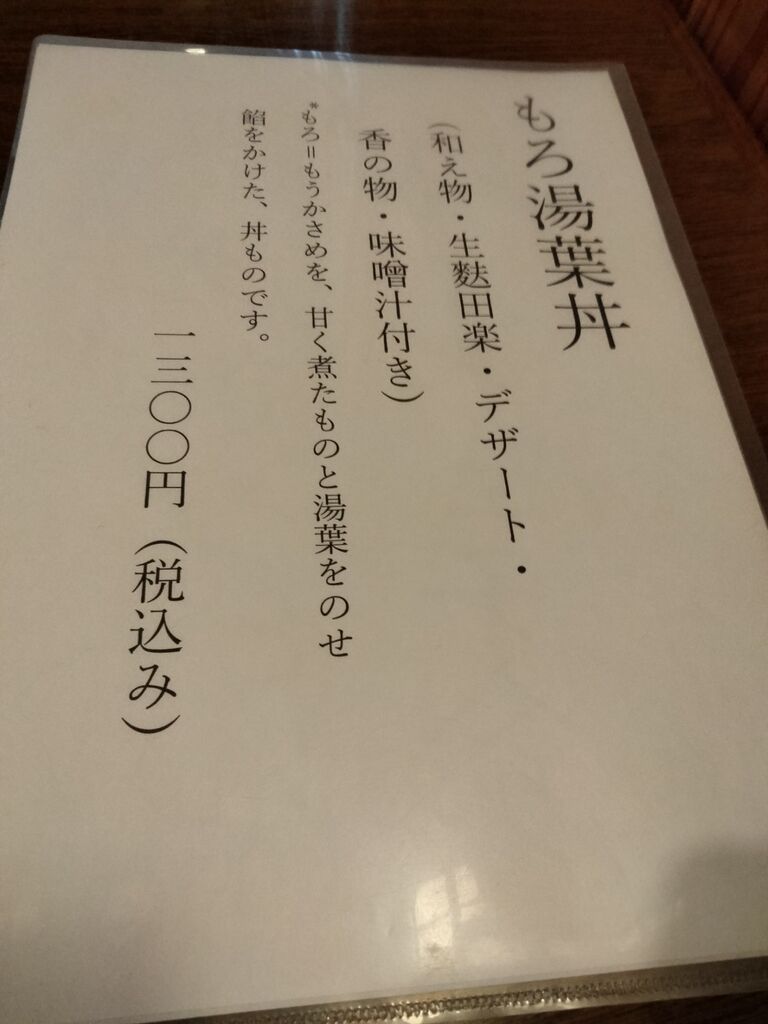 もろ湯葉丼
(和え物・生麩田楽・デザート・
香の物・味噌汁付き)
*もろ=もうかさめを、甘く煮たものと湯葉をのせ
餡をかけた、丼ものです。
一三〇〇円(税込み)